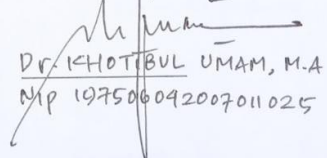 Dr. KHOTIBUL UMAM, M.A
NIP 197506042007011025